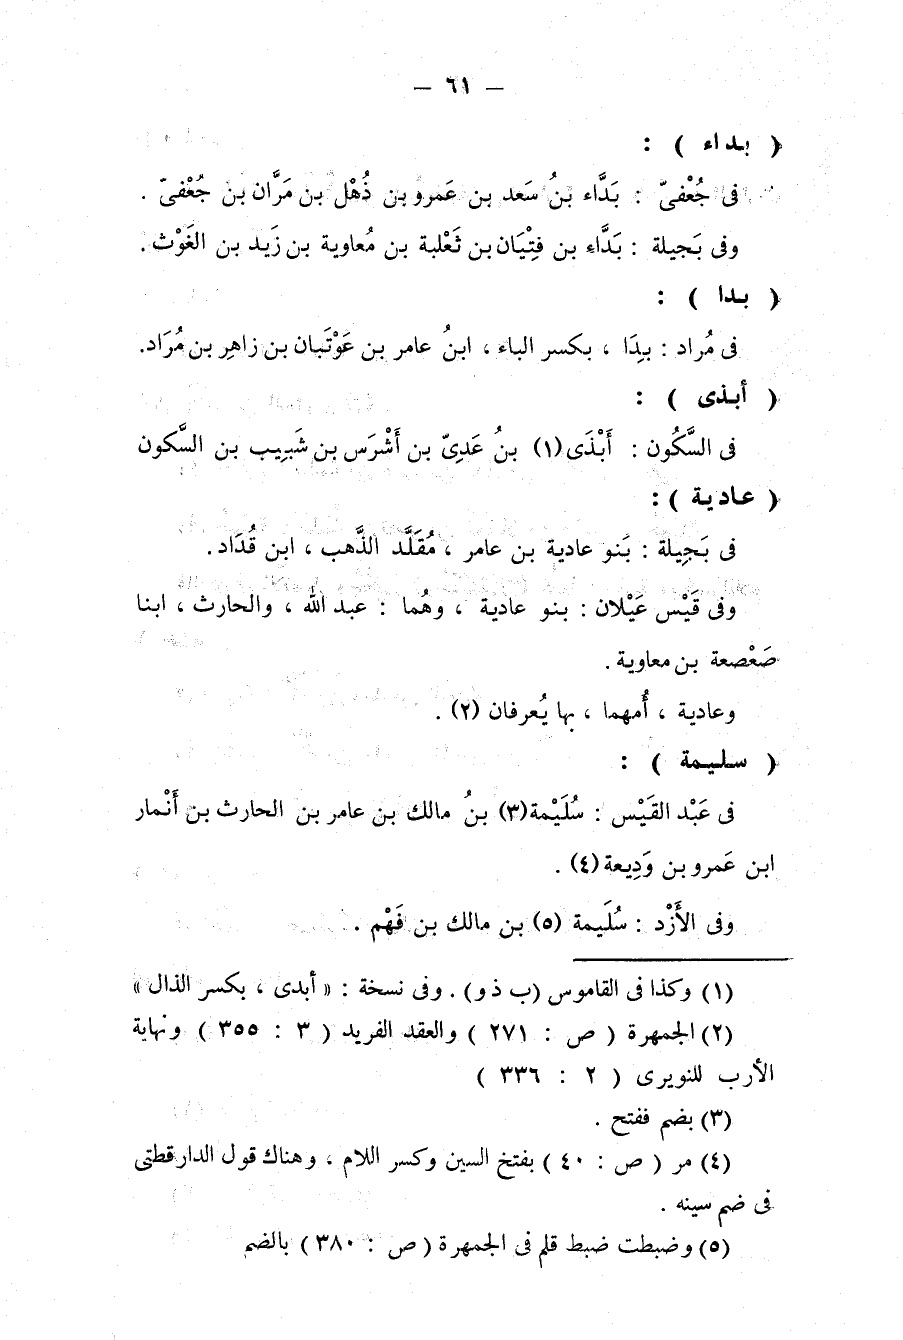 — ٦١ —
( بداء ) :
فى جُعْفىّ : بَدَّاء بنُ سَعد بن عَمرو بن ذُهْل بن مَرَّان بن جُعْفىّ .
وفى بَجيلة : بَدَّاء بن فِتْيَان بن ثَعْلبة بن مُعاوية بن زَيد بن الغَوْث .
( بدا ) :
فى مُراد : بِدَا ، بكسر الباء ، ابنُ عامر بن عَوْتَبان بن زاهِر بن مُرَاد.
( أبذى ) :
فى السَّكُون : أَبْذَى (١) بنُ عَدِىّ بن أَشْرَس بن شَبِيب بن السَّكون
( عادية ) :
فى بَجِيلة : بَنو عادية بن عامر ، مُقَلَّد الذَّهب ، ابن قُدَاد .
وفى قَيْس عَيْلان : بنو عادية ، وهُما : عبد الله ، والحارث ، ابنا
صَعْصعة بن معاوية .
وعادية ، أُمهما ، بها يُعرفان (٢) .
( سليمة ) :
فى عَبْد القَيْس : سُلَيْمة (٣) بنُ مالك بن عامر بن الحارث بن أَنْمار
ابن عَمرو بن وَدِيعة (٤) .
وفى الأَزْد : سُلَيمة (٥) بن مالك بن فَهْم .
(١) وكذا فى القاموس (ب ذ و) . وفى نسخة : « أبدى ، بكسر الذال »
(٢) الجمهرة ( ص : ٢٧١ ) والعقد الفريد ( ٣ : ٣٥٥ ) ونهاية
الأرب للنويرى ( ٢ : ٣٣٦ )
(٣) بضم ففتح .
(٤) مر ( ص : ٤٠ ) بفتخ السين وكسر اللام ، وهناك قول الدارقطنى
فى ضم سينه .
(٥) وضبطت ضبط قلم فى الجمهرة ( ص : ٣٨٠ ) بالضم